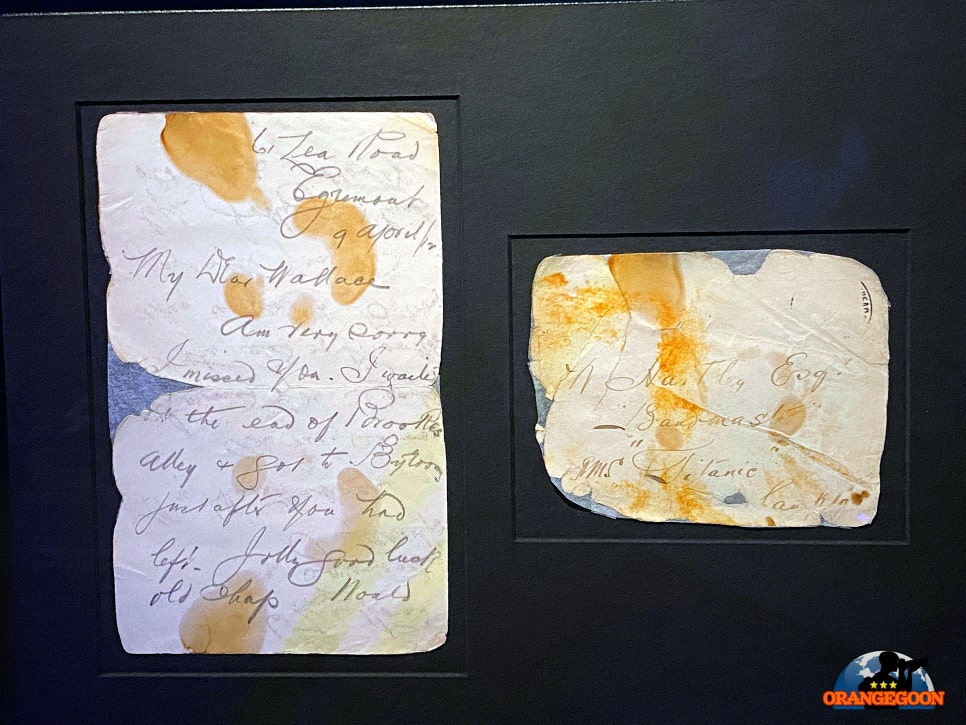 61 Lea Road
Egremont
9 April/12
My Dear Wallace
Am very sorry
I missed you. I waited
at the end of Brookes
Alley & got to Bytoms
just after you had
left. Jolly good luck
old chap
W Hartley Esq
"Bandmaster"
RMS "Titanic"
ORANGEGOON